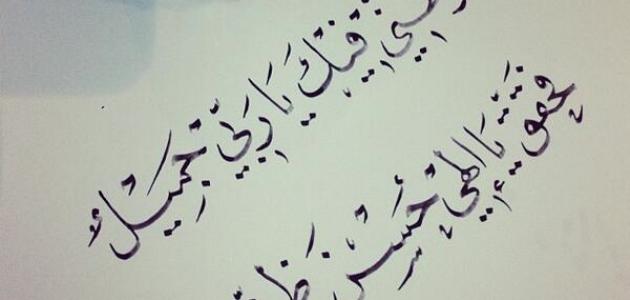 فِيكَ يَا رَبِّي جَمِيلٌ
فَحَقِّقْ يَا إِلهِي حُسْنَ